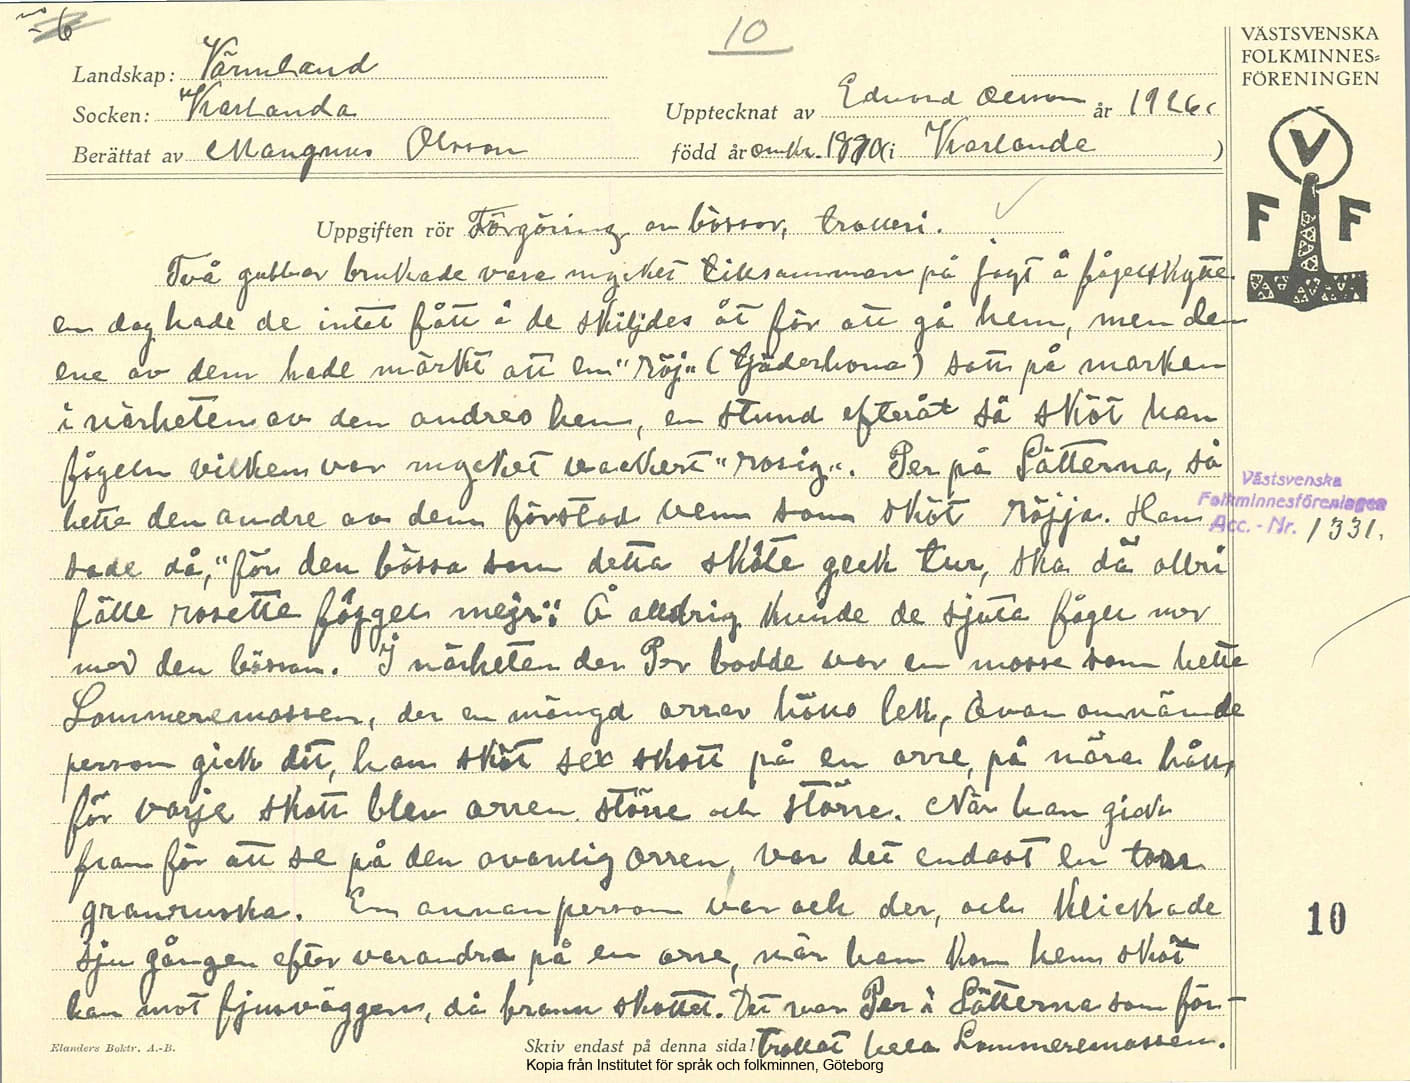 6
10
VÄSTSVENSKA
FOLKMINNES=
FÖRENINGEN
Landskap: Värmland
Socken: Karlanda
Upptecknat av Edvard Olsson år 1926.
Berättat av Mangnus Olsson
född år omkr. 1870 i Karlanda )
V
F F
Uppgiften rör Förgöring av bössor, trolleri.
Två gubbar brukade vara mycket tiksamman på jagt å fågelskytte
en dag hade de intet fått å de skiljdes åt för att gå hem, men den
ene av dem hade märkt att en "röj" (tjäderhona) satt på marken
i närheten av den andres hem, en stund efteråt så sköt han
fågeln vilken var mycket vackert "rosig". Per på Sätterna, så
hette den andre av dem förstod vem som sköt röjja. Han
sade då, "för den bössa som detta sköte geck tur, ska dä alldri
fälle rosette fôggel mejr". Å alldrig kunde de sjuta fågel mer
med den bössan. I närheten der Per bodde var en mosse som hette
Lommeremossen, der en mängd orrar hölls lek, ovan omnämde
person gick dit, han sköt sex skott på en orre, på nära håll,
för varje skott blev orren större och större. När han gick
fram för att se på den ovanlig orren, var det endast en torr
granruska. En annan person var ock der, och klickade
sju gången efter varandra på en orre, när han kom hem sköt
han mot fjusväggen, då brann skottet. Det var Per i Sätterna som för-
trollat hela Lommeremossen.
Västsvenska
Folkminnesföreningen
Acc. - Nr. 1331.
10
Elanders Boktr. A.-B.
Skriv endast på denna sida!
Kopia från Institutet för språk och folkminnen, Göteborg